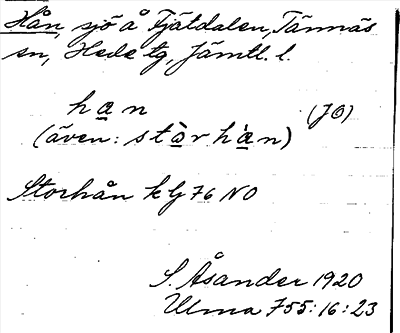 Hån, sjö å Fjätdalen, Tännäs
sn, Hede tg, Jämtl. l.
han (JÖ)
(även: stòrhàn)
Storhån k bj 76 NO
S. Åsander 1920
Ulma 755:16:23